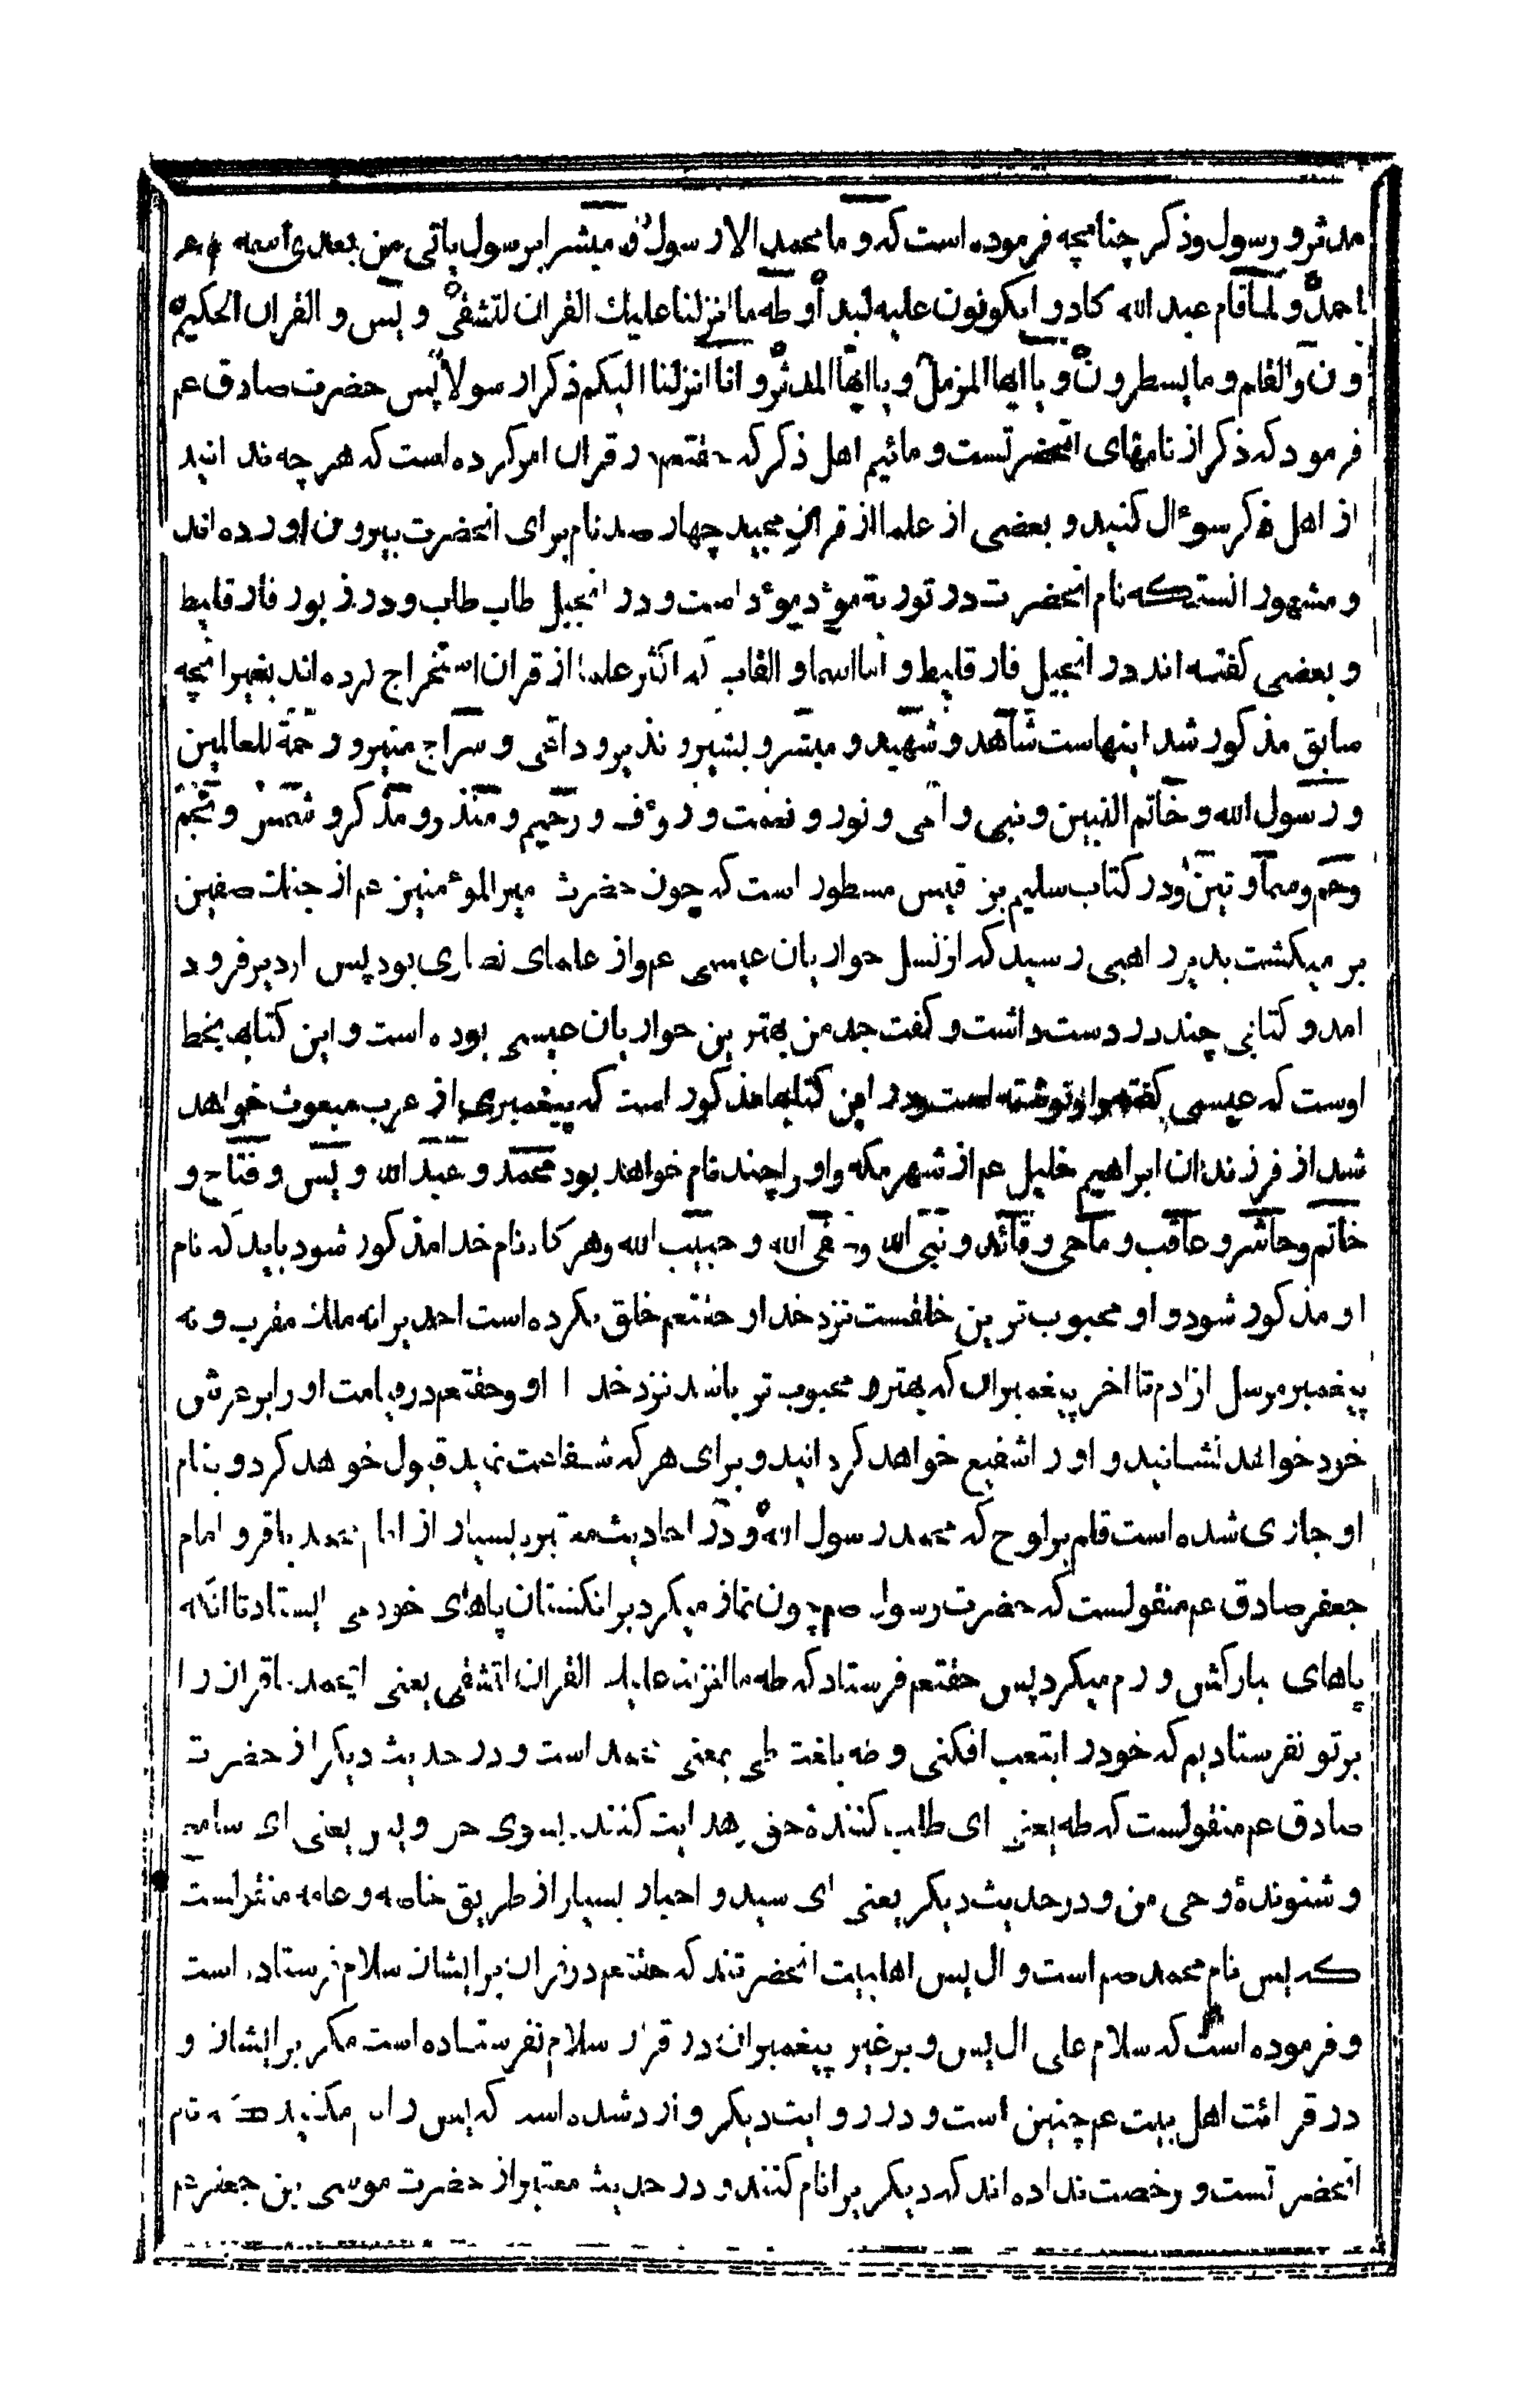 مدثر و رسول و ذکر چنانچه فرموده است که و ما محمد الا رسول و مبشرا برسول یاتی من بعدی اسمه
احمد و لما قام عبد الله کادوا یکونون علیه لبدا و طه ما انزلنا علیك القران لتشقی و یس و القران الحکیم
و ن و القلم و ما یسطرون و یا ایها المزمل و یا ایها المدثر و انا انزلنا الیکم ذکرا رسولا پس حضرت صادق عم
فرمود که ذکر از نامهای انحضرتست و مائیم اهل ذکر که حقتعم در قران امر کرده است که هر چه ندانید
از اهل ذکر سوءال کنید و بعضی از علما از قران مجید چهار صد نام برای انحضرت بیرون اورده اند
و مشهور انستکه نام انحضرت در توریة موءد موءد است و در انجیل طاب طاب و در زبور فارقلیط
و بعضی کفته اند در انجیل فارقلیط و اما اسما و القاب که اکثر علما از قران استخراج کرده اند بغیر انچه
سابق مذکور شد اینهاست شاهد و شهید و مبشر و بشیر و نذیر و داعی و سراج منیر و رحمة للعالمین
و رسول الله و خاتم النبیین و نبی و امی و نور و نعمت و روءف و رحیم و منذر و مذکر و شمس و نجم
و حم و سما و تین و در کتاب سلیم بن قیس مسطور است که چون حضرت امیر الموءمنین عم از جنك صفین
بر میکشت بدیر راهبی رسید که از نسل حواریان عیسی عم و از علمای نصاری بود پس از دیر فرود
امد و کتابی چند در دست داشت و کفت جد من بهترین حواریان عیسی بوده است و این کتابها بخط
اوست که عیسی کفته و او نوشته است و در این کتابها مذکور است که پیغمبری از عرب مبعوث خواهد
شد از فرزندان ابراهیم خلیل عم از شهر مکه و او را چند نام خواهد بود محمد و عبد الله و یس و فتاح و
خاتم و حاشر و عاقب و ماحی و قائد و نبی الله و صفی الله و حبیب الله و هر کاه نام خدا مذکور شود باید که نام
او مذکور شود و او محبوب ترین خلقست نزد خدا و حقتعم خلق نکرده است احدیرا نه ملك مقرب و نه
پیغمبر مرسل از ادم تا اخر پیغمبران که بهتر و محبوب تر باشد نزد خدا از او و حقتعم در قیامت او را بر عرش
خود خواهد نشانید و او را شفیع خواهد کردانید و برای هر که شفاعت نماید قبول خواهد کرد و بنام
او جاری شده است قلم بر لوح که محمد رسول الله و در احادیث معتبره بسیار از امام محمد باقر و امام
جعفر صادق عم منقولست که حضرت رسول صم چون نماز میکرد بر انکشتان پاهای خود می ایستاد تا انکه
پاهای مبارکش ورم میکرد پس حقتعم فرستاد که طه ما انزلنا علیك القران لتشقی یعنی ایمحمد ما قران را
بر تو نفرستادیم که خود را بتعب افکنی و طه بلغت طی بمعنی محمد است و در حدیث دیکر از حضرت
صادق عم منقولست که طه یعنی ای طالب کنندۀ حق هدایت کننده بسوی حق و یس یعنی ای سامع
و شنوندۀ وحی من و در حدیث دیکر یعنی ای سید و اخبار بسیار از طریق خاصه و عامه منقولست
که یس نام محمد صم است و ال یس اهلبیت انحضرتند که حقتعم در قران بر ایشان سلام فرستاده است
و فرموده است که سلام علی ال یس و بر غیر پیغمبران در قران سلام نفرستاده است مکر بر ایشان و
در قرائت اهل بیت عم چنین است و در روایت دیکر وارد شده است که یس را نام مکنید که نام
انحضرتست و رخصت نداده اند که دیکریرا نام کنند و در حدیث معتبر از حضرت موسی بن جعفر عم